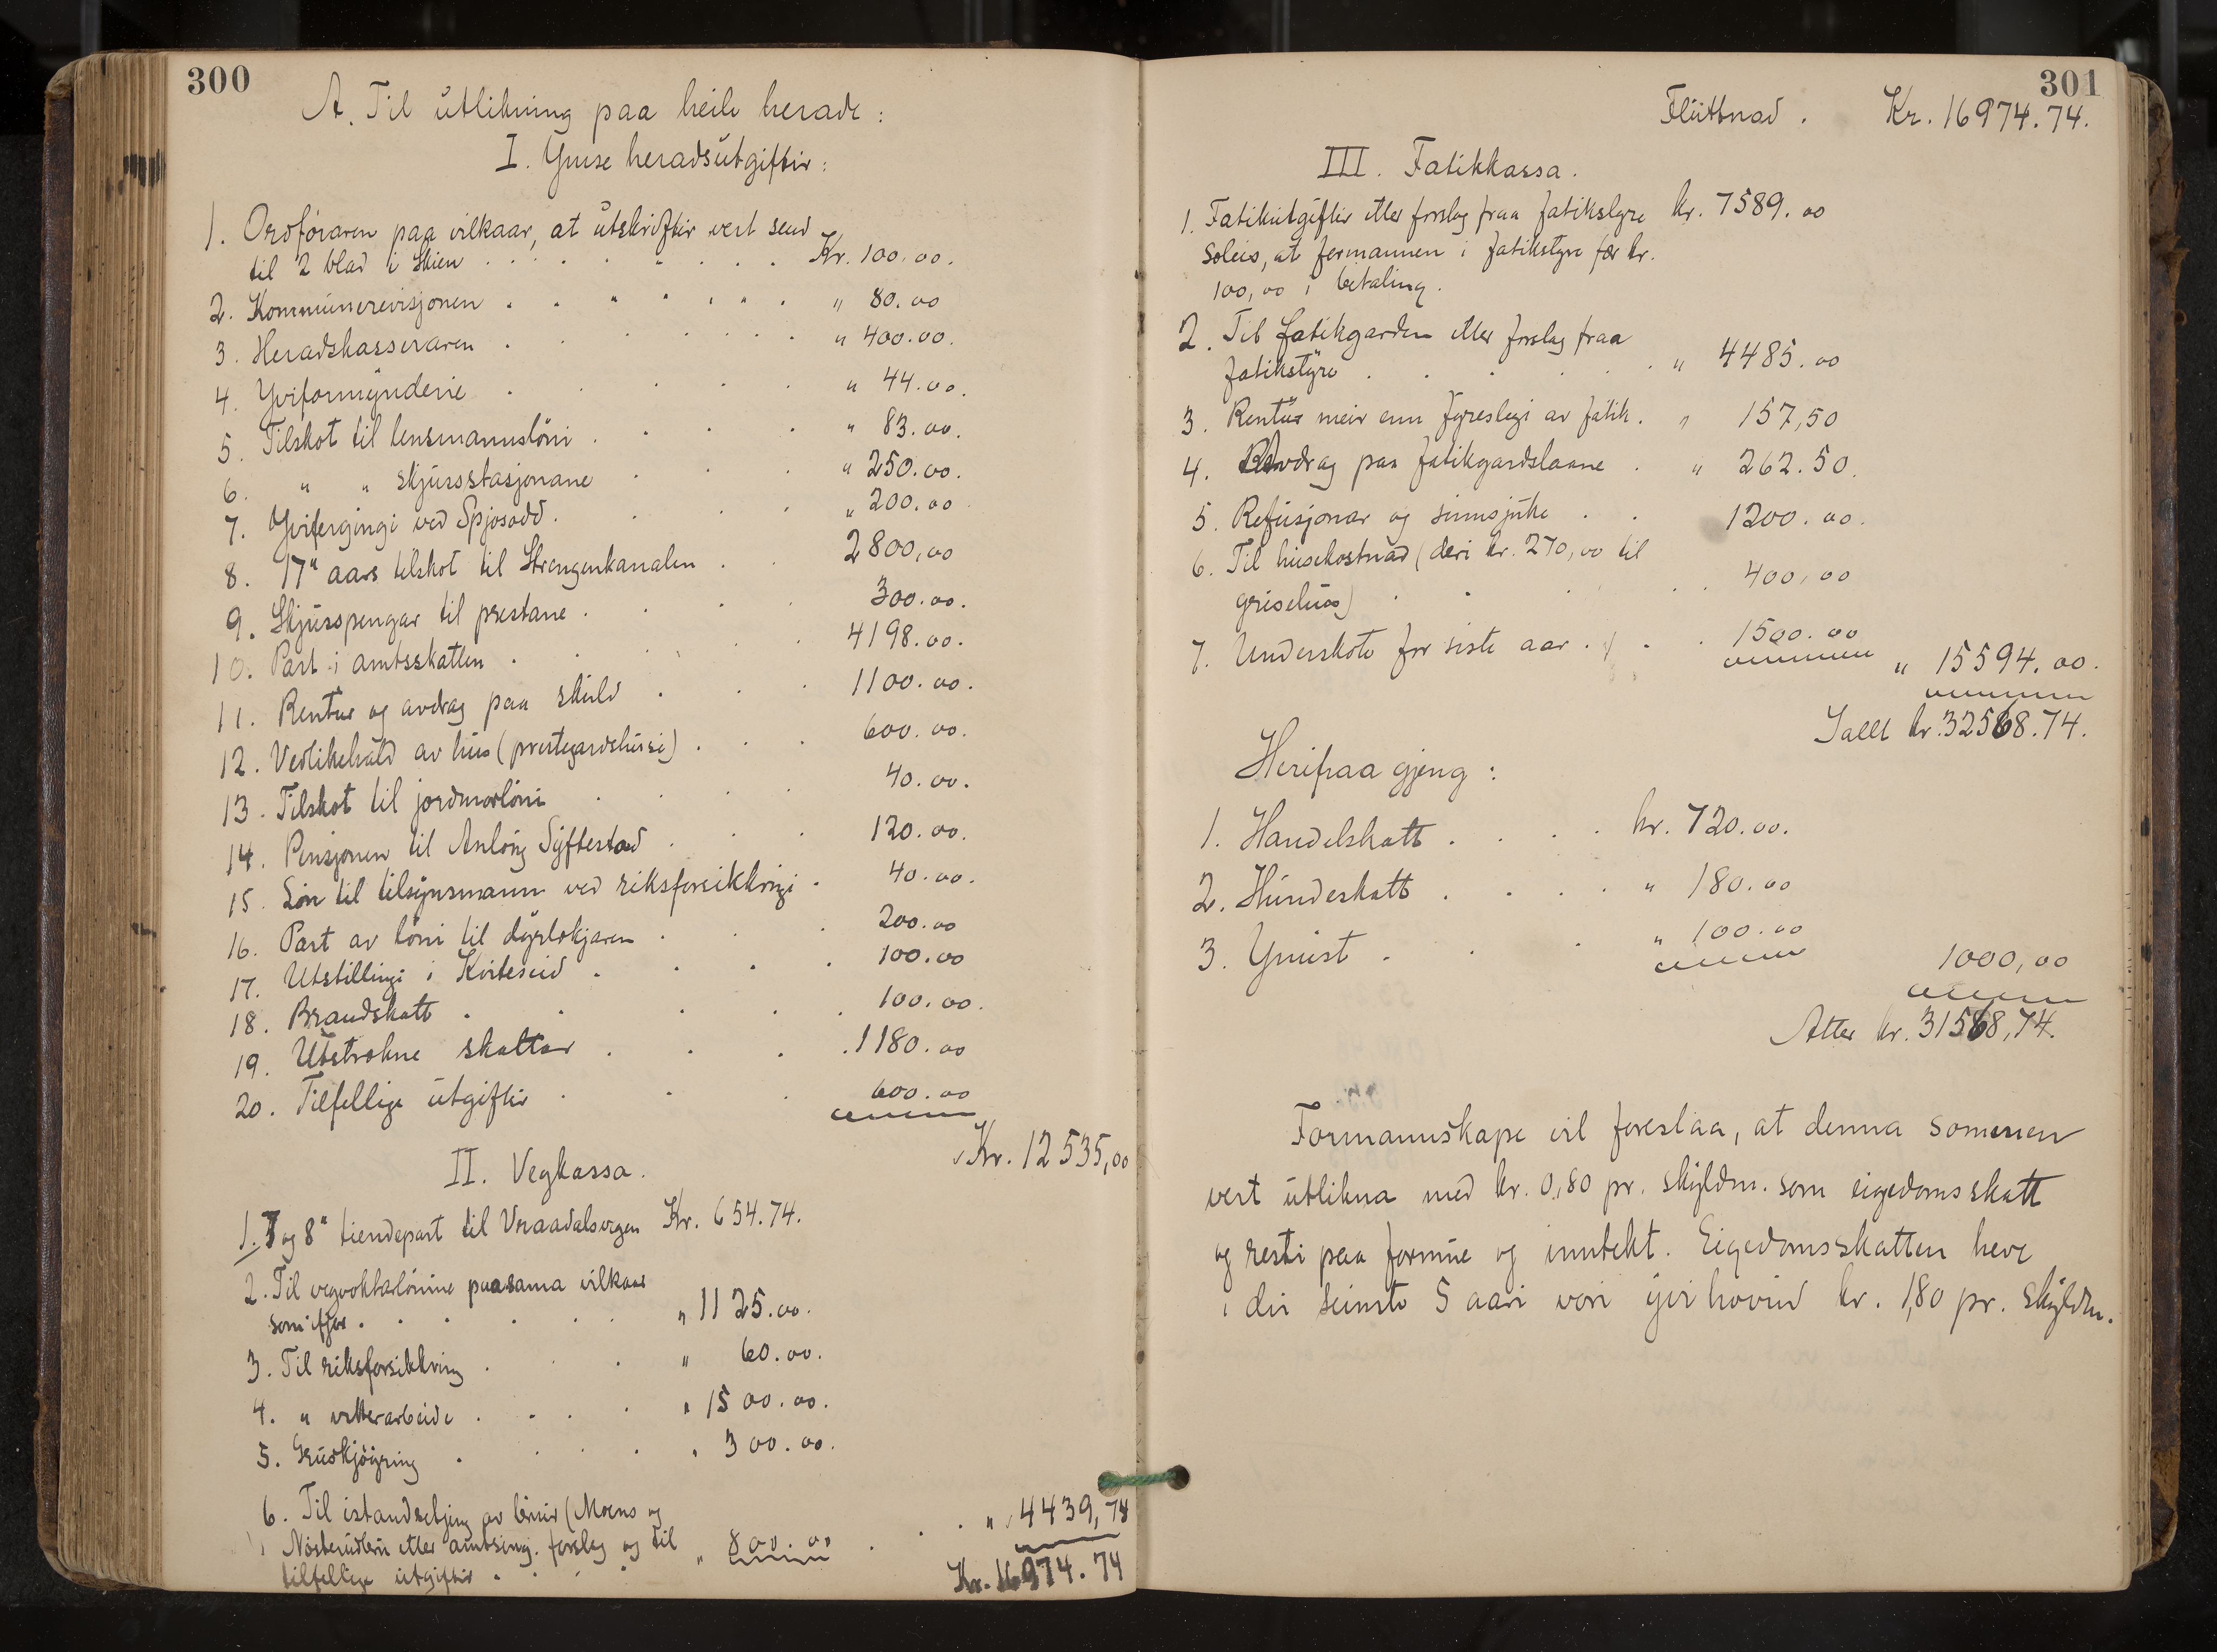 300
A. Til utlikning paa heile herade:
I. Ymse heradsutgiftir:
1. Ordföraren paa vilkaar, at utskriftir vert send
til 2 blad i Skien . . . . . . . Kr. 100.00.
2. Kommunerevisjonen . . . . . . . " 80.00
3. Heradskasseraren . . . . . . " 400.00.
4. Yviformynderie . . . . " 44.00.
5. Tilskot til lensmannsløni . . . . " 83.00.
6. " " skjusstasjonane . . . " 250.00.
7. Yvifergingi ved Spjosodd . . . . " 200.00
8. 17" aars tilskot til Strengenkanalen . . 2800,00
9. Skjusspengar til prestane . . . . 300.00.
10. Part i amtsskatten . . . . 4198.00.
11. Rentur og avdrag paa skuld . . . 1100.00.
12. Vedlikehald av hus (prestegardshusi) . . . 600.00.
13. Tilskot til jordmorløni . . . . 40.00.
14. Pensjonen til Anlaug Syftestad . . . 120.00.
15. Løn til tilsynsmann ved riksforsikkringi . 40.00.
16. Part av løni til dyrlækjaren . . . 200.00
17. Utstillingi i Kviteseid . . . . 100.00
18. Brandskatt . . . . . 100.00.
19. Utstrokne skattar . . . . 1180.00
20. Tilfellige utgiftir . . . 600.00
Kr. 12535,00
II. Vegkassa.
1. 7 og 8" tiendepart til Vraadalsvegen Kr. 654.74.
2. Til vegvoktarlønine paa sama vilkaar
som ifjor . . . . . . " 1125.00.
3. Til riksforsikkring . . . " 60.00.
4. " vetterarbeide . . . . " 1500.00.
5. Gruskjøyring . . . . " 300.00.
6. Til istandsetjing av bruir (Moens og
Nosterudbrui etter amtsing. forslag og til
tilfellige utgiftir . . . . " 800.00 . . . " 4439,74
Kr. 16974.74
301
Fluttnad . Kr. 16974.74.
III. Fatikkassa.
1. Fatikutgiftir etter forslag fraa fatikstyre kr. 7589.00
soleis, at formannen i fatikstyre fær kr.
100,00 i betaling.
2. Til fatikgarden etter forslag fraa
fatikstyre . . . . . . " 4485.00
3. Rentur meir enn fyreslegi av fatik. " 157,50
4. Avdrag paa fatikgardslaane . " 262.50.
5. Refusjonar og sinnsjuke . . 1200.00.
6. Til husekostnad (deri kr. 270,00 til
grisehus) . . . . . 400,00
7. Underskote for siste aar . . . 1500.00
" 15594.00.
Iallt kr. 32568.74.
Herifraa gjeng:
1. Handelskatt . . . . kr. 720.00.
2. Hundeskatt . . . . " 180.00
3. Ymist . . . " 100.00
1000,00
Atter kr. 31568,74.
Formannskape vil foreslaa, at denna sommen
vert utlikna med kr. 0,80 pr. skyldm. som eigedomsskatt
og resti paa formue og inntekt. Eigedomsskatten heve
i dei seinste 5 aari vori yvi hovud kr. 1,80 pr. skyldm.